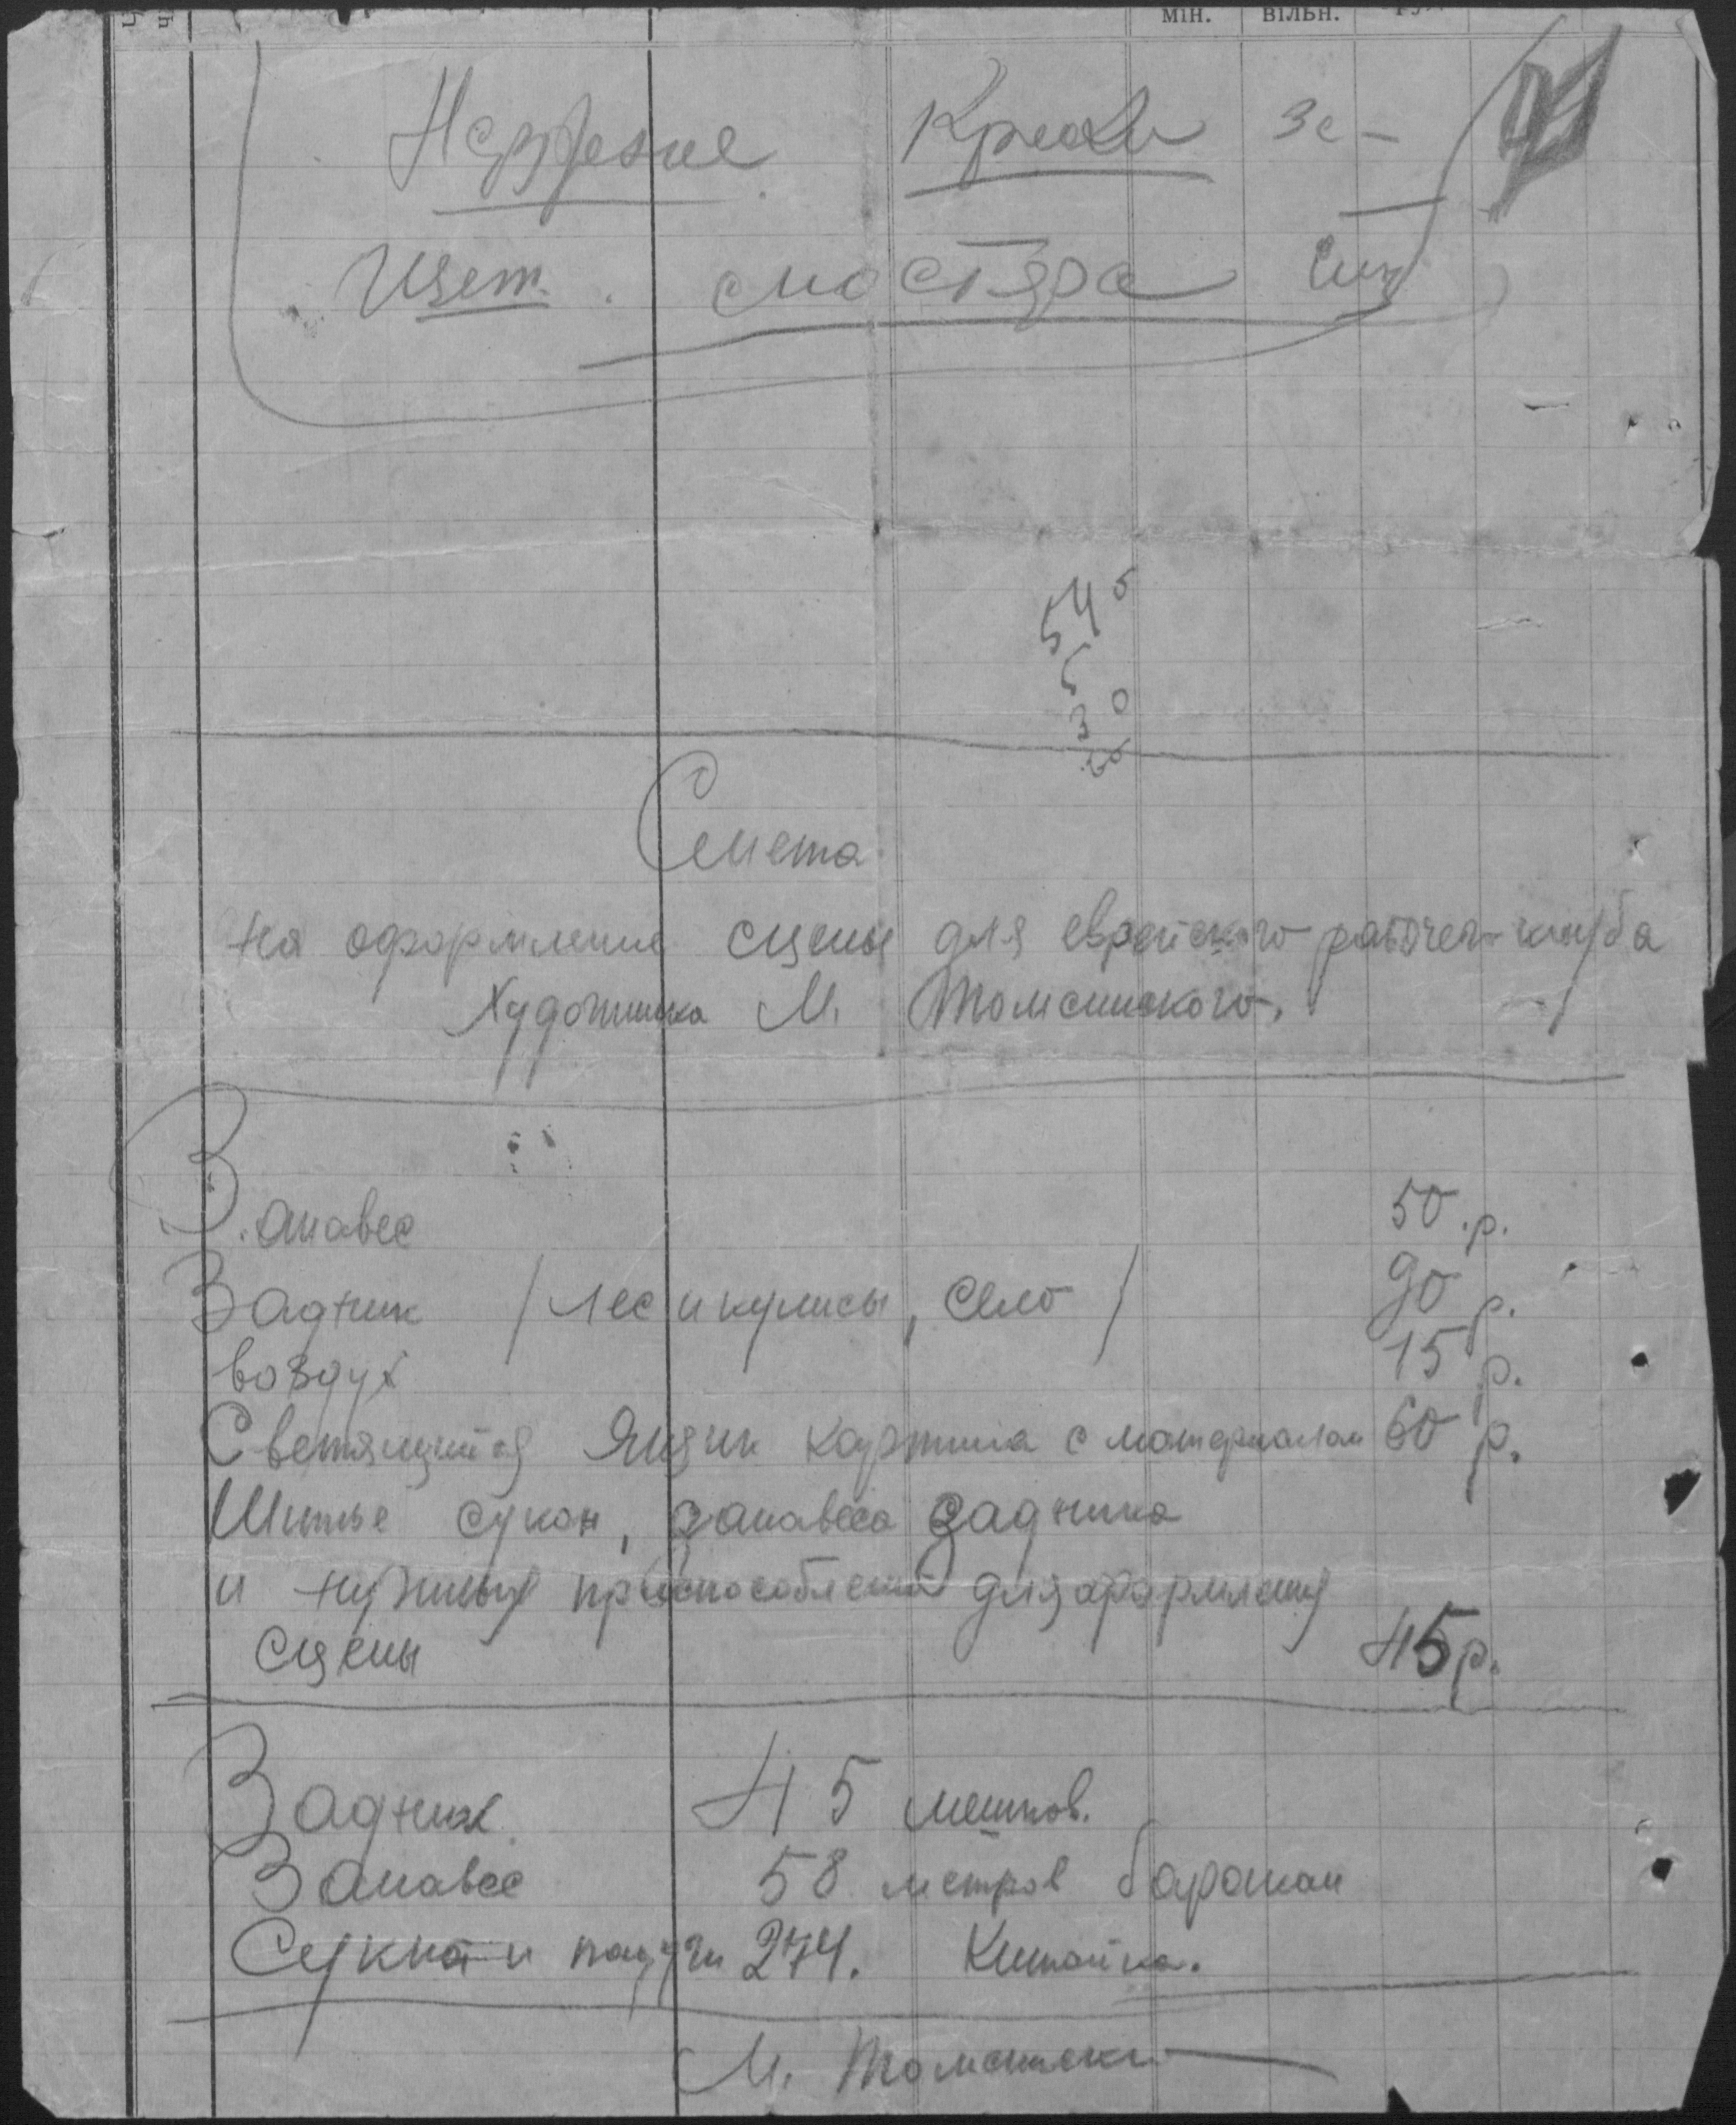 мін. вільн.
Смета
на оформление сцены для еврейского рабочего клуба
Художника М. Томсинского.
Занавес 50 р.
Задник / лес и кулисы, село / 90 р.
воздух 15 р.
Светящийся Ящик картина с материалом 60 р.
Шитье сукон, занавеса задника
и нужных приспособлений для оформления
сцены 45 р.
Задник 45 мешков.
Занавес 58 метров баракан
Сукна и падуги 274. Китайка.
М. Томсинский